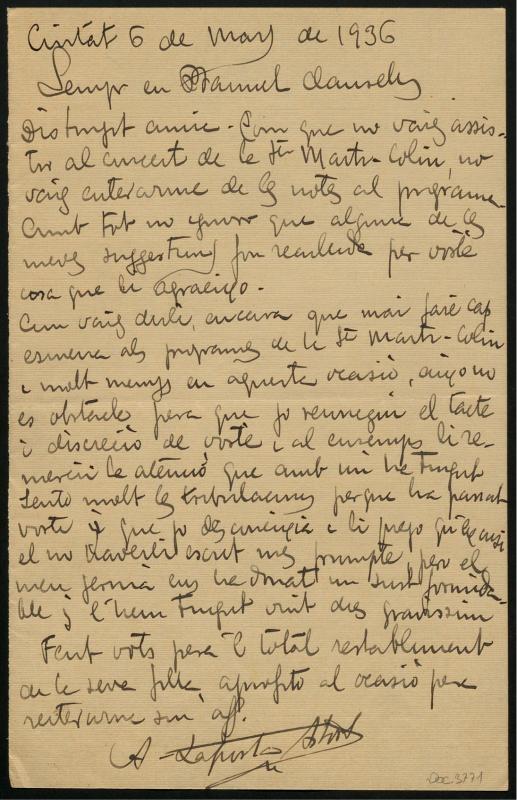 Ciutat 6 de Mars de 1936
Senyor en Manuel Clausells
Distingit amic - Com que no vaig assis-
tir al concert de la Sta Martí-Colin, no
vaig enterarme de les notes al programa.
Amb tot no ignoro que alguna de les
meves suggestions fou recullida per vostè
cosa que li agraeixo.
Com vaig dirli, encara que mai faré cap
esmena als programes de la Sta Martí-Colin
i molt menys en aquesta ocasió, aixo no
es obstacle pera que jo regonegui el tacte
i discreció de vostè i al ensemps li re-
mercii la atenció que amb mi ha tingut
Sento molt les tribulacions perque ha passat
vostè i que jo desconeixia i li prego
el no haverli escrit mes prompte, pero el
meu germà ens ha donat un sust formida-
ble i l'hem tingut vint dies gravissim
Fent vots pera l total restabliment
de la seva filla, aprofito al ocasió pera
reiterarme seu aff.
A.
Doc. 3771